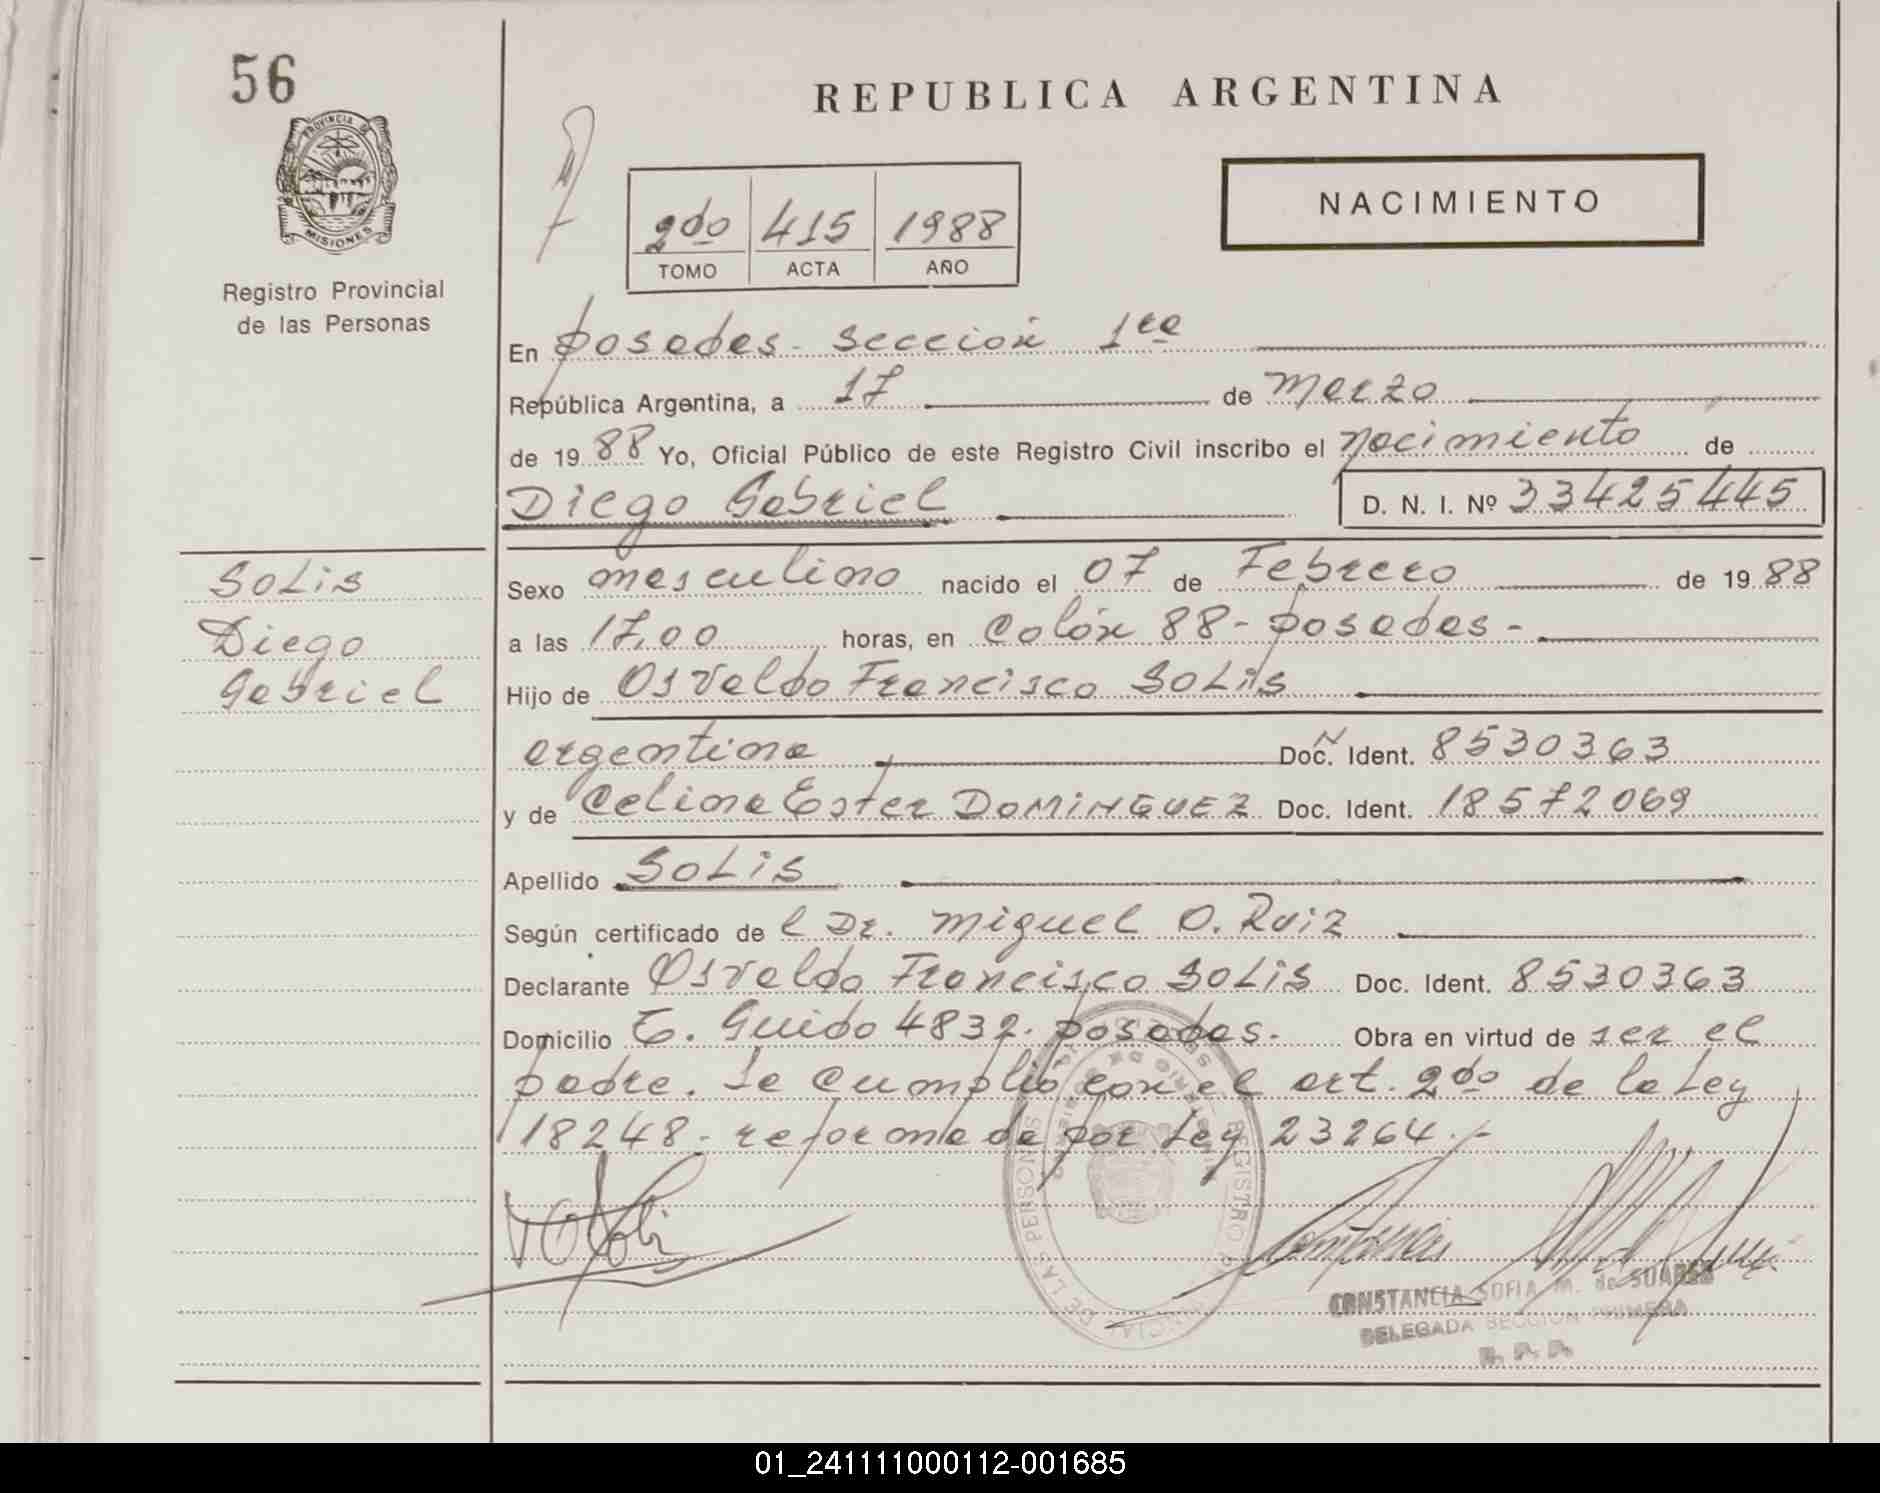 56
REPUBLICA ARGENTINA
PROVINCIA DE
MISIONES
Registro Provincial
de las Personas
NACIMIENTO
2do 415 1988
TOMO ACTA AÑO
En Posadas - Sección 1ra
República Argentina, a 17 de Marzo
de 1988 Yo, Oficial Público de este Registro Civil inscribo el nacimiento de
Diego Gabriel D. N. I. Nº 33425445
Solis
Diego
Gabriel
Sexo masculino nacido el 07 de Febrero de 1988
a las 17,00 horas, en Colón 88 - Posadas -
Hijo de Osvaldo Francisco SOLIS
argentina Doc. Ident. 8530363
y de Celina Ester DOMINGUEZ Doc. Ident. 18572069
Apellido SOLIS
Según certificado de l Dr. Miguel O. Ruiz
Declarante Osvaldo Francisco SOLIS Doc. Ident. 8530363
Domicilio T. Guido 4832. Posadas. Obra en virtud de ser el
padre. Se cumplió con el art. 2do de la Ley
18248 - reformada por Ley 23264.-
CONSTANCIA SOFIA M. de SUAREZ
DELEGADA SECCION PRIMERA
R. P. P.
01_241111000112-001685